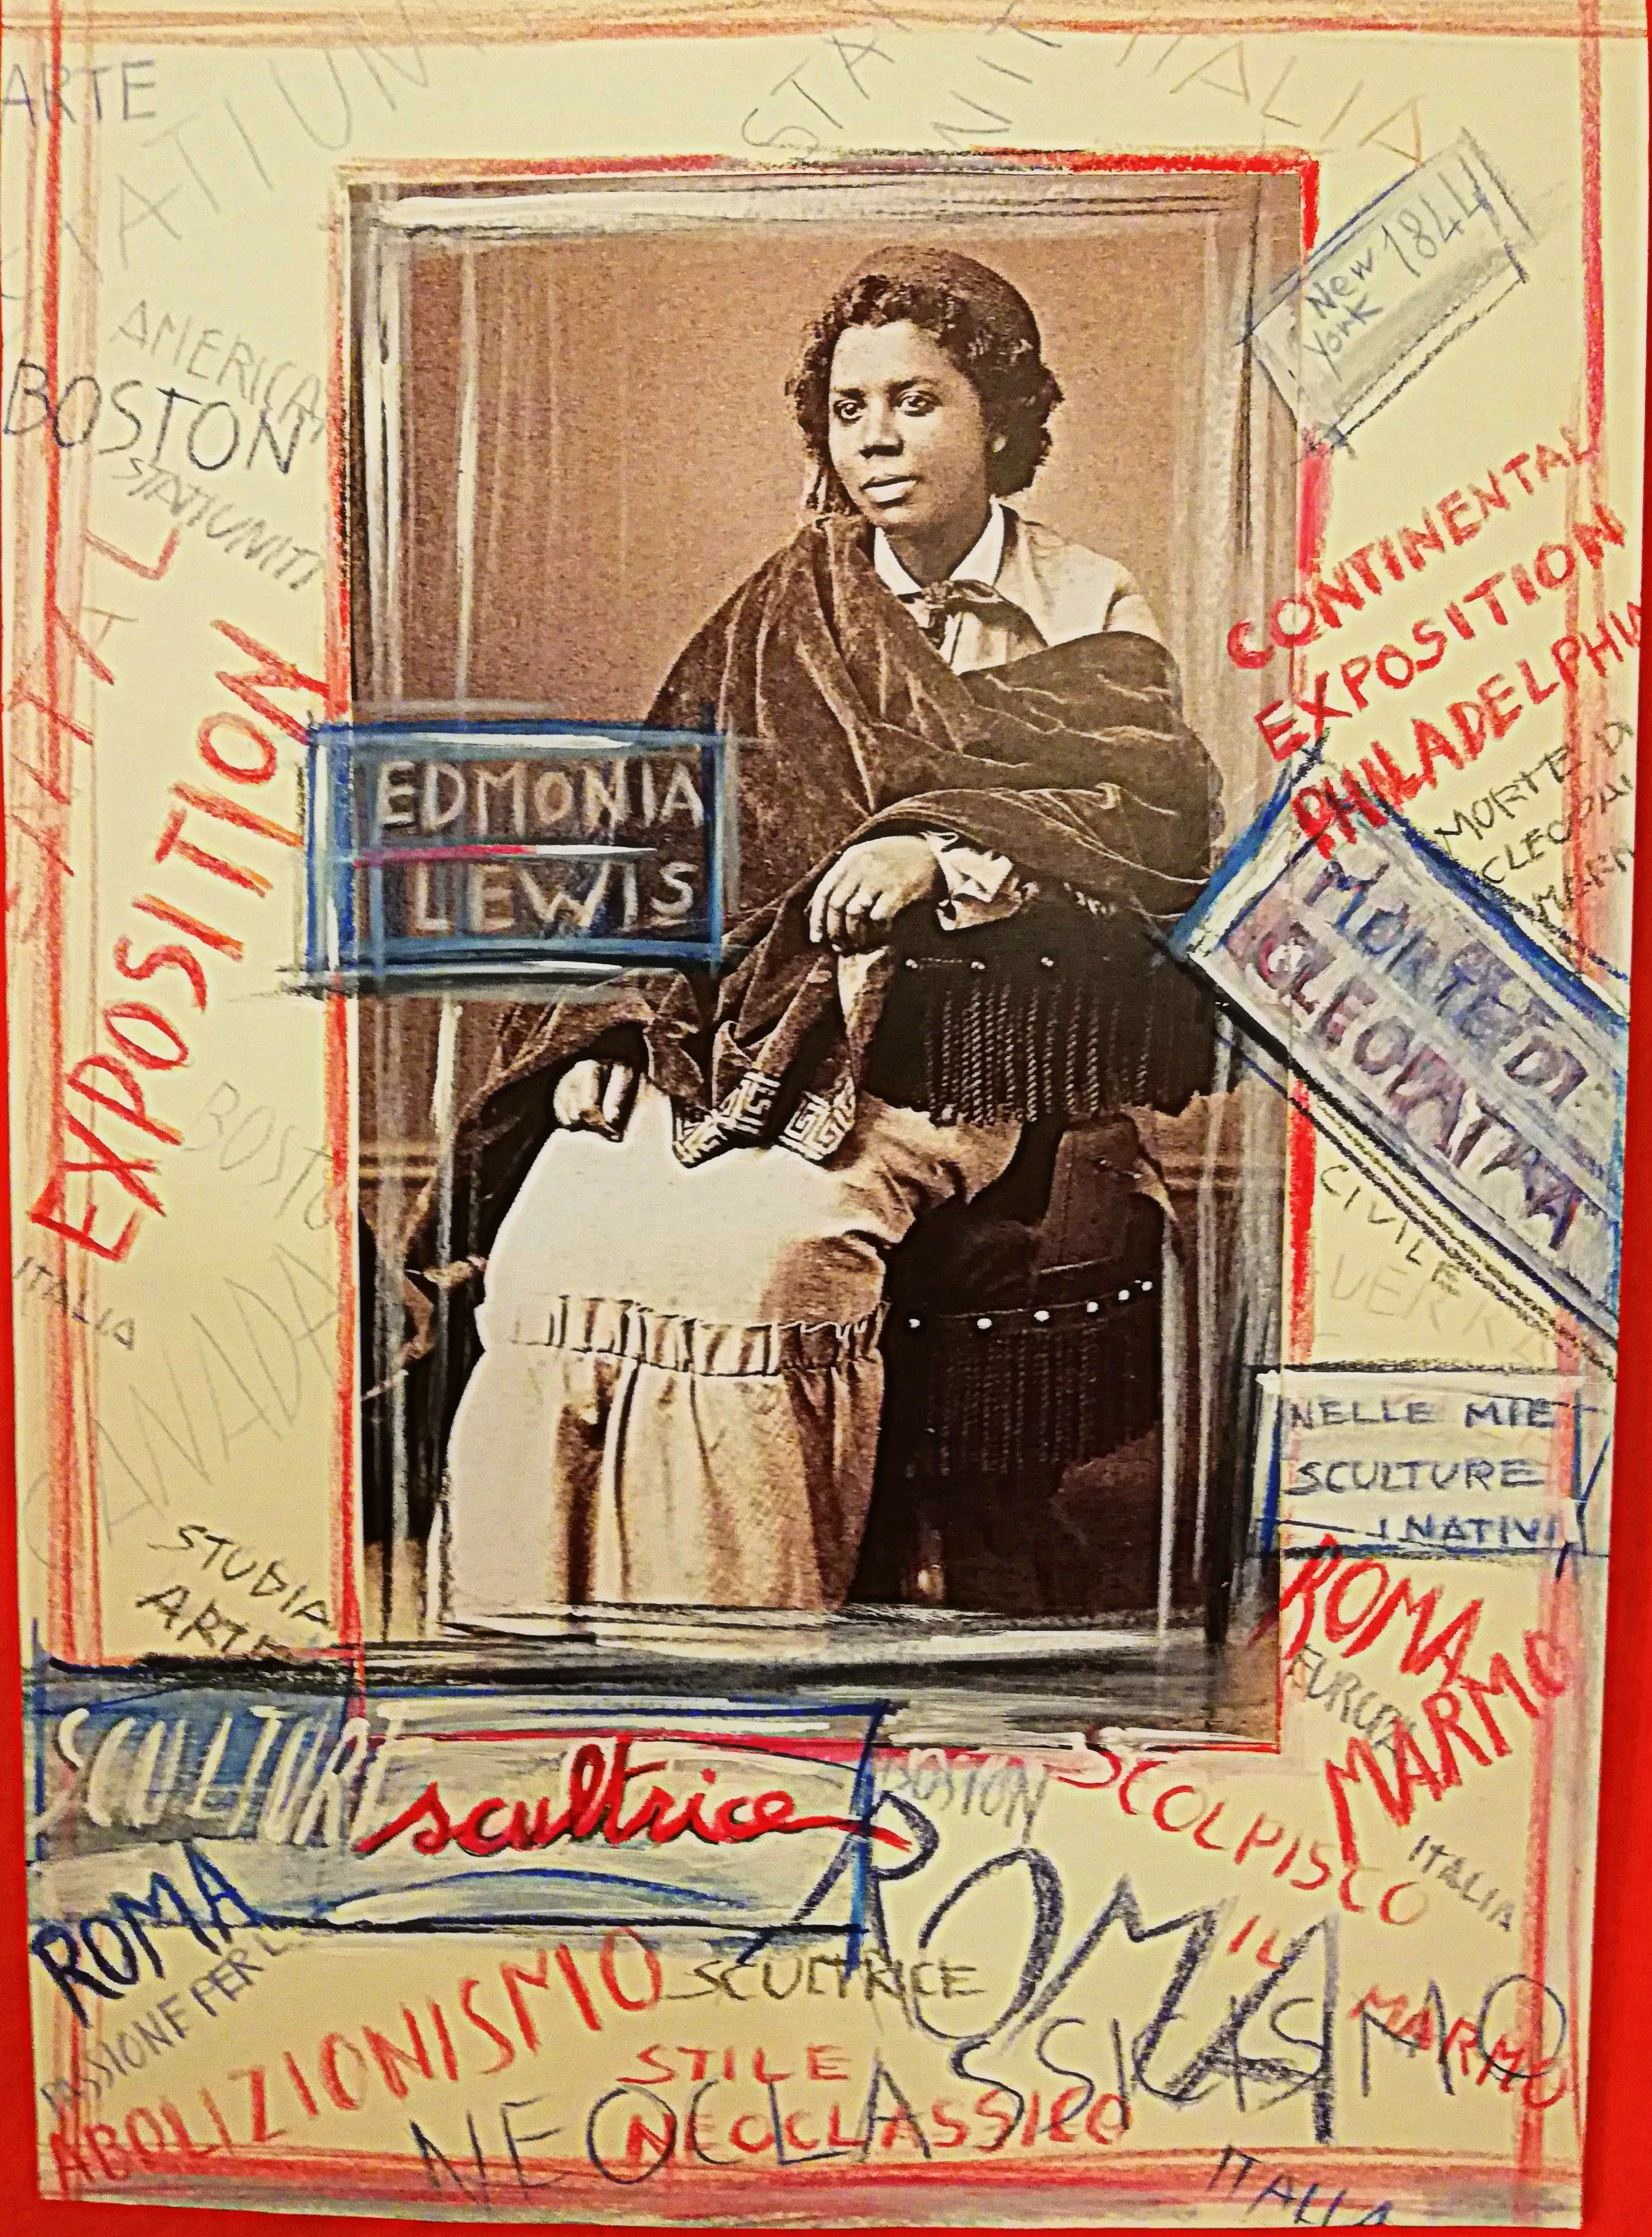 ARTE
STATI UNI
STA
UNI
ITALIA
New 1844
York
AMERICA
BOSTON
STATI UNITI
CONTINENTAL
EXPOSITION
EXPOSITION
MORTE DI
MORTE DI
CLEOPATRA
EDMONIA
LEWIS
BOSTO
CIVILE
ITALIA
CANADA
NELLE MIE
SCULTURE
I NATIVI
STUDIA
ARTE
ROMA
MARMO
SCULTURE
scultrice
BOSTON
SCOLPISCO
IL
MARMO
ITALIA
ROMA
ROMA
PASSIONE PER L
SCULTRICE
ABOLIZIONISMO
STILE
NEOCLASSICO
NEOCLASSICISMO
ITALIA